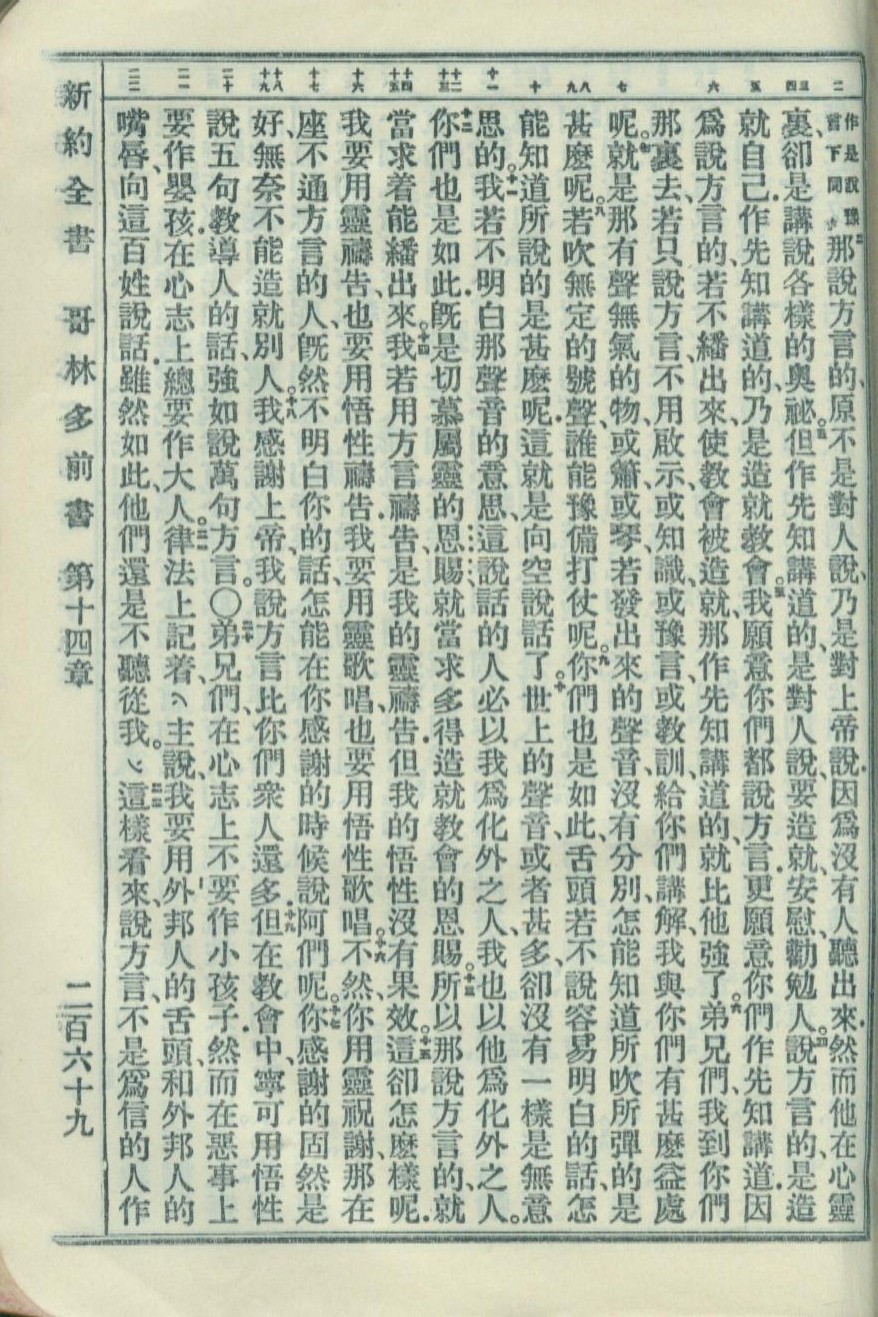 二 三 四 五 六 七 八 九 十 十一 十二 十三 十四 十五 十六 十七 十八 十九 二十 二一 二二
作是說豫言下同 二那說方言的、原不是對人說、乃是對上帝說．因爲沒有人聽出來．然而他在心靈
裏、卻是講說各樣的奧祕。三但作先知講道的、是對人說、要造就、安慰、勸勉人。四說方言的、是造
就自己．作先知講道的、乃是造就教會。五我願意你們都說方言．更願意你們作先知講道．因
爲說方言的、若不繙出來、使教會被造就、那作先知講道的、就比他強了。六弟兄們、我到你們
那裏去、若只說方言、不用啟示、或知識、或豫言、或教訓、給你們講解、我與你們有甚麽益處
呢。七就是那有聲無氣的物、或簫、或琴、若發出來的聲音沒有分別、怎能知道所吹所彈的是
甚麽呢。八若吹無定的號聲、誰能豫備打仗呢。九你們也是如此、舌頭若不說容易明白的話、怎
能知道所說的是甚麽呢．這就是向空說話了。十世上的聲音、或者甚多、卻沒有一樣是無意
思的。十一我若不明白那聲音的意思、這說話的人必以我爲化外之人、我也以他爲化外之人。
十二你們也是如此．旣是切慕屬靈的恩賜、就當求多得造就教會的恩賜。十三所以那說方言的、就
當求着能繙出來。十四我若用方言禱告、是我的靈禱告．但我的悟性沒有果效。十五這卻怎麽樣呢．
我要用靈禱告、也要用悟性禱告．我要用靈歌唱、也要用悟性歌唱。十六不然、你用靈祝謝、那在
座不通方言的人、旣然不明白你的話、怎能在你感謝的時候說阿們呢。十七你感謝的固然是
好、無奈不能造就別人。十八我感謝上帝、我說方言比你們衆人還多．十九但在教會中、寧可用悟性
說五句教導人的話、強如說萬句方言。〇二十弟兄們、在心志上不要作小孩子．然而在惡事上
要作嬰孩．在心志上總要作大人。二一律法上記着、主說、我要用外邦人的舌頭、和外邦人的
嘴唇、向這百姓說話．雖然如此、他們還是不聽從我。二二這樣看來、說方言、不是爲信的人作
新約全書 哥林多前書 第十四章 二百六十九